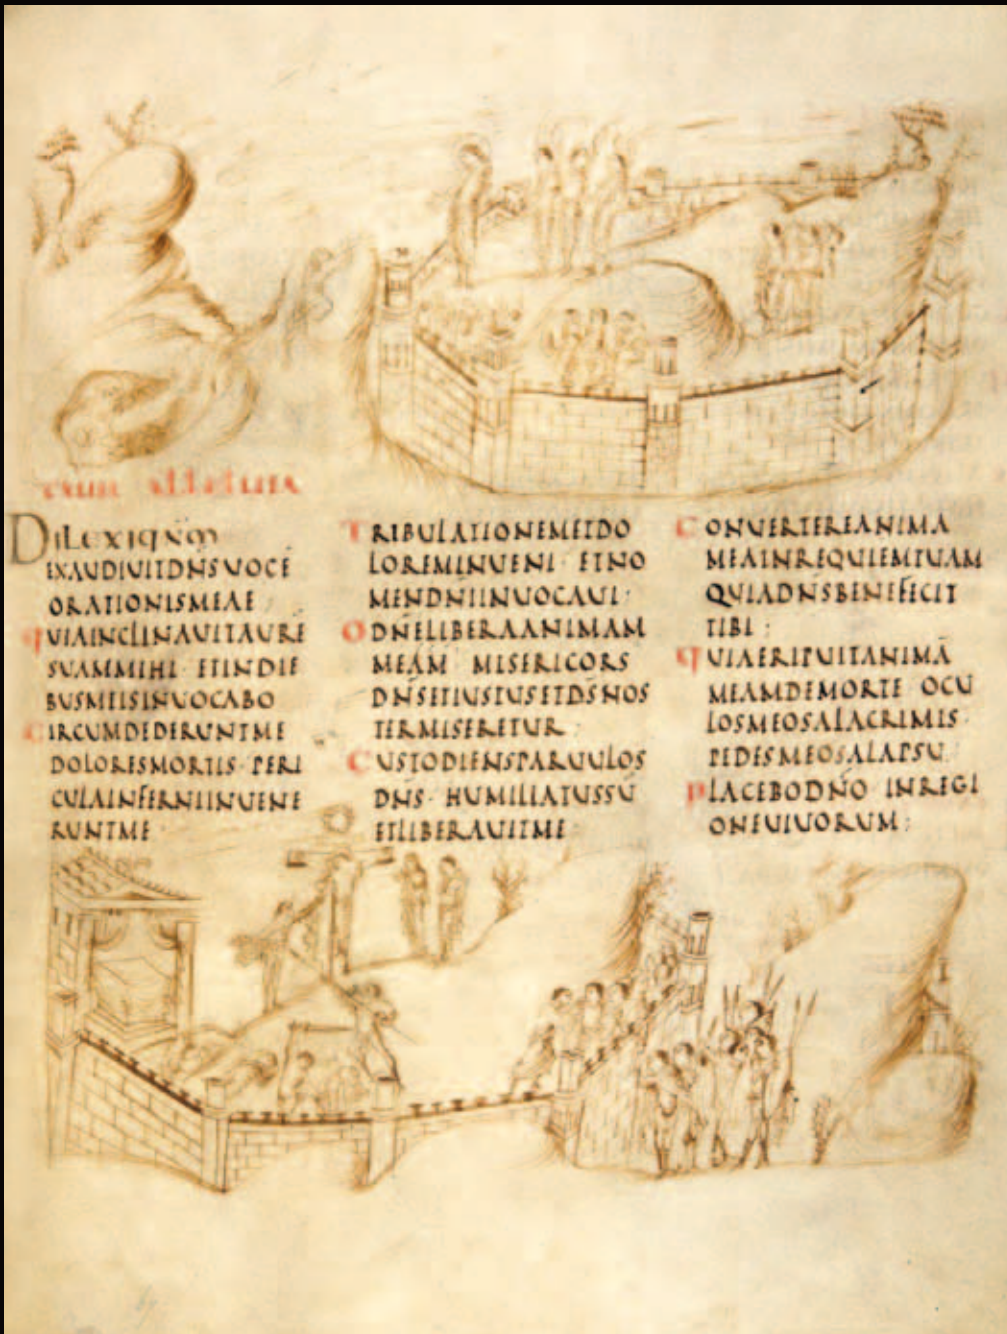 ALLELUIA
DILEXIQNM
EXAUDIUITDNSUOCĒ
ORATIONISMEAE
QUIAINCLINAUITAURĒ
SUAMMIHI ETINDIE
BUSMEISINUOCABO
CIRCUMDEDERUNTME
DOLORESMORTIS PERI
CULAINFERNIINUENE
RUNTME
TRIBULATIONEMETDO
LOREMINUENI ETNO
MENDN̄IINUOCAUI·
ODN̄ELIBERAANIMAM
MEAM MISERICORS
DN̄SETIUSTUSETDS̄NOS
TERMISERETUR
CUSTODIENSPARUULOS
DN̄S· HUMILIATUSSŪ
ETLIBERAUITME
CONUERTEREANIMA
MEAINREQUIEMTUAM
QUIADN̄SBENEFECIT
TIBI:
QUIAERIPUITANIMĀ
MEAMDEMORTE OCU
LOSMEOSALACRIMIS·
PEDESMEOSALAPSU
PLACEBODN̄O INREGI
ONEUIUORUM: